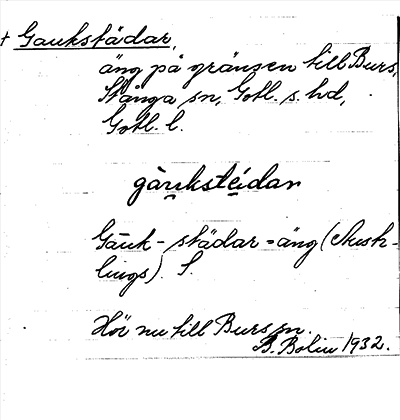 + Gaukstädar,
äng på gränsen till Burs,
Stånga sn, Gotl. s. hd,
Gotl. l.
gàu̯kstei̯dar
Gāuk-städar = äng (Kush-
lings). S.
Hör nu till Burs sn.
B. Bolin 1932.